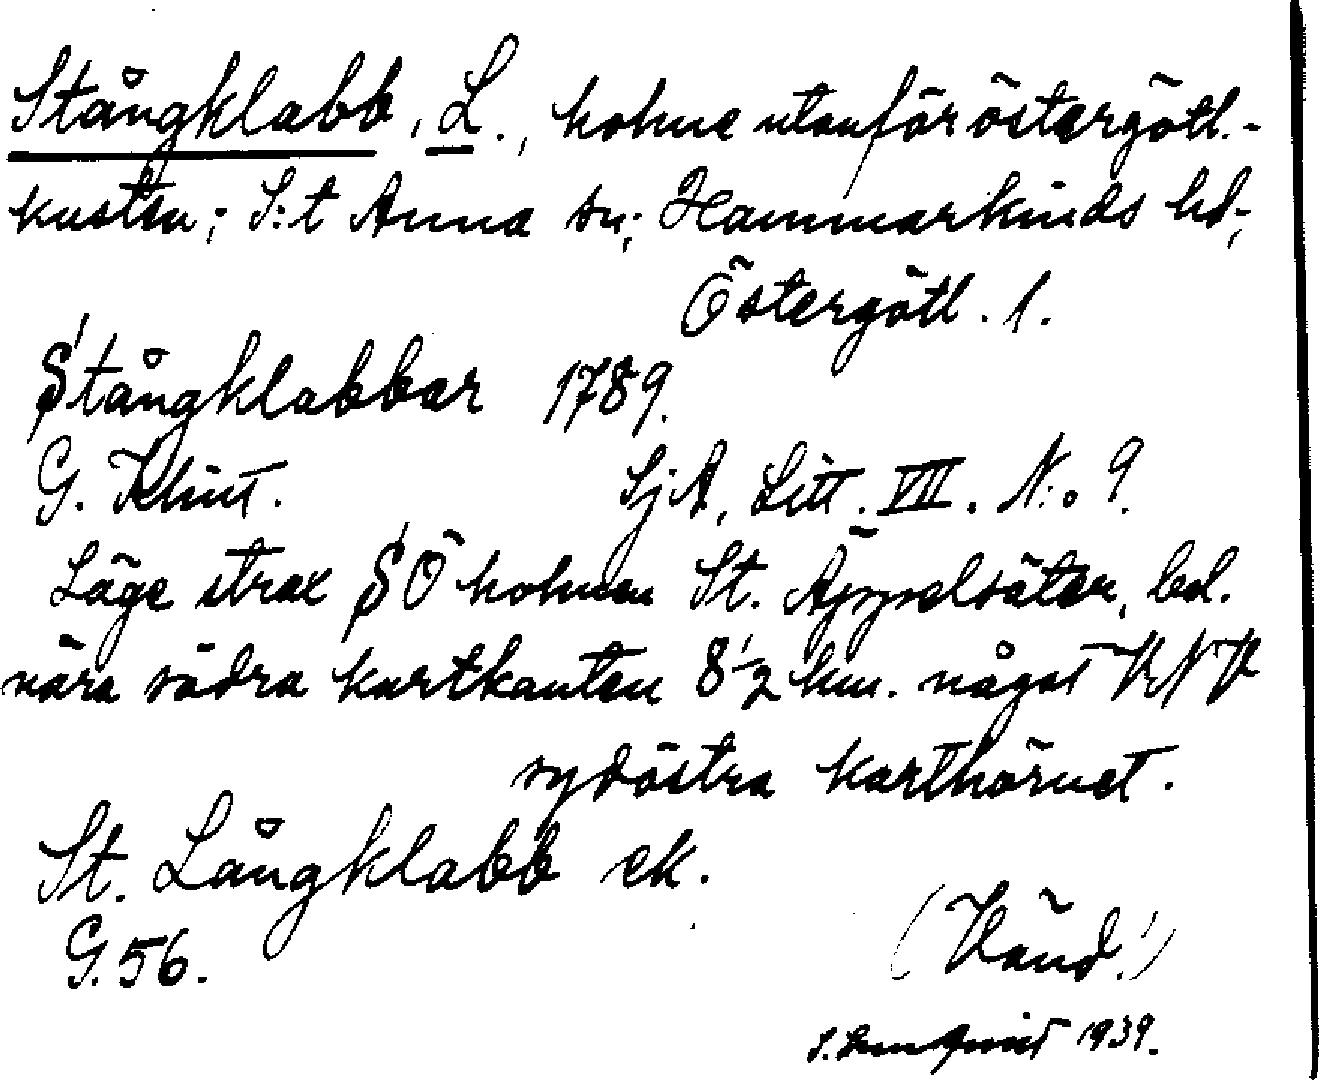 Stångklabb, L., holme utanför östergötl.-
kusten; S:t Anna sn; Hammarkinds hd;
Östergötl. l.
Stångklabbar 1789.
G. Klint. SjA, Litt. VII. N:o 9.
Läge strax SÖ holmen St. Äppelsäter, bel.
nära södra kartkanten 8 1/2 km. något VNV
sydöstra karthörnet.
St. Långklabb ek.
G. 56.
(Vänd!)
1939.